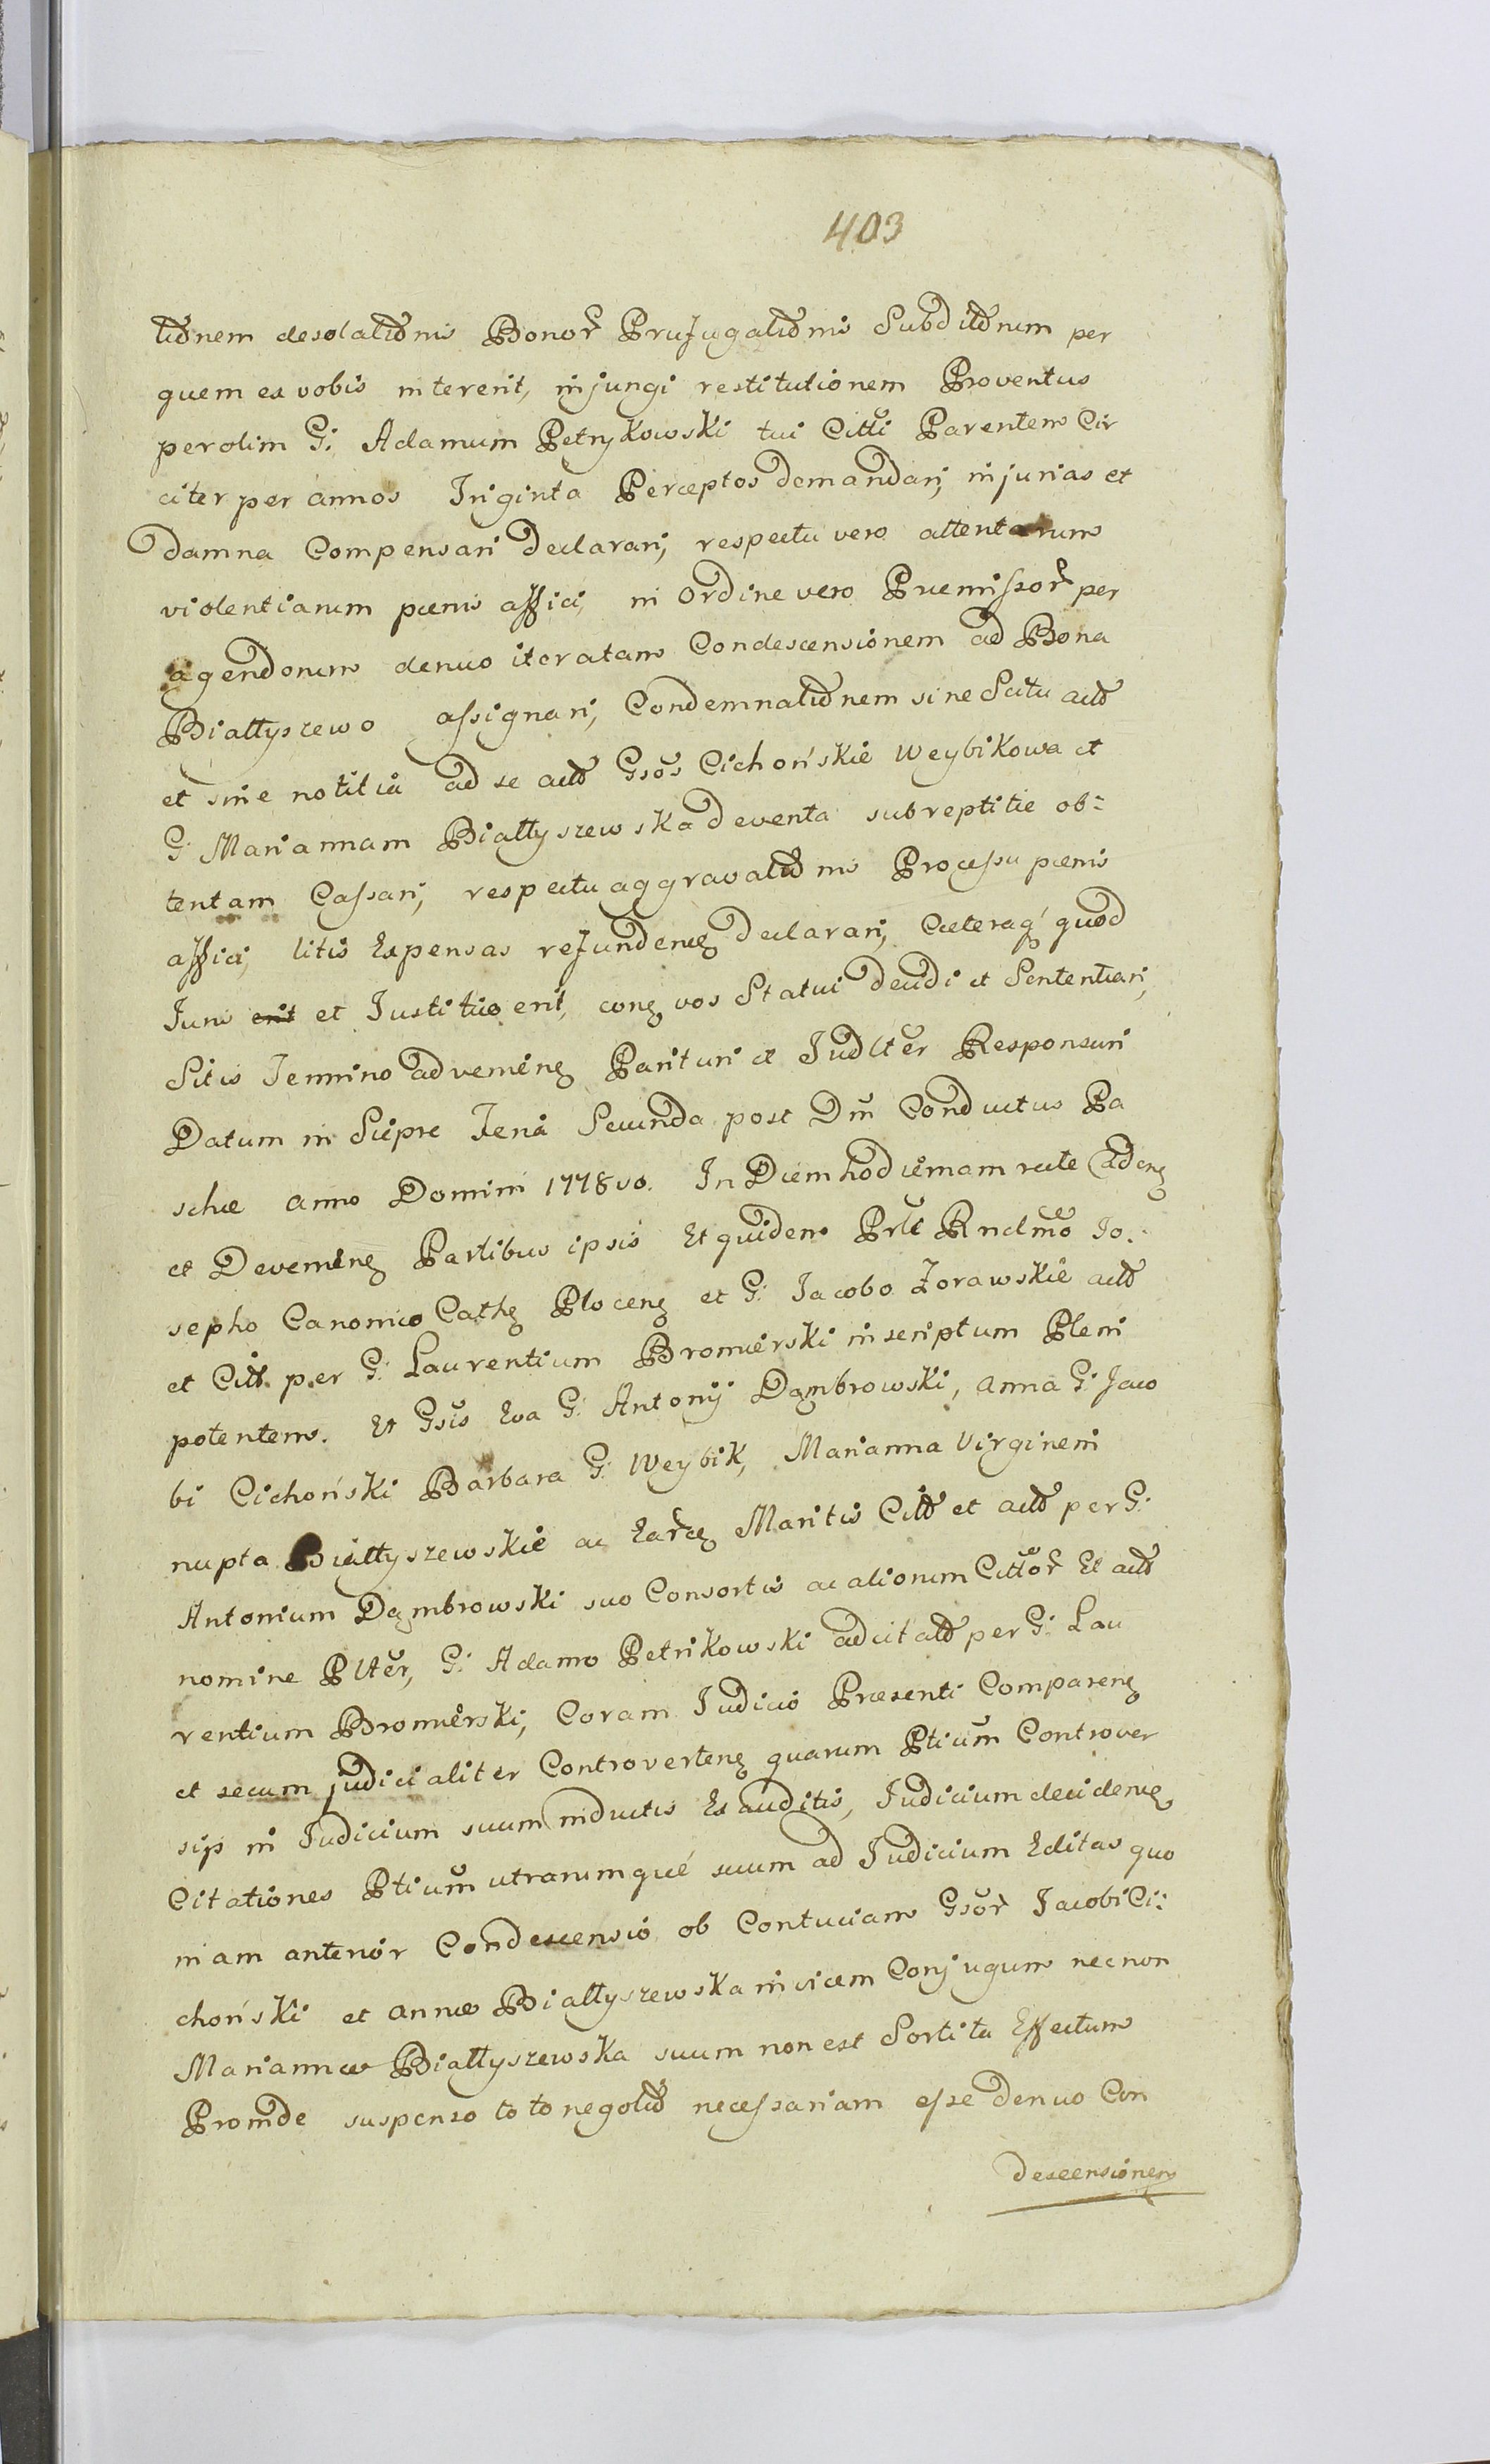 403
tiõnem desolatiõnis Bonor̃ Profugatiõnis Subditõrum per
quem ex vobis intererit, injungi restitutionem Proventus
per olim G: Adamum Petrykowski tui Citti Parentem Cir
citer per annos Triginta Perceptos demandari, injurias et
damna Compensari declarari, respectu vero attentarum
violentiarum pœnis affici, in Ordine vero Præmissor̃ per
agendorum denuo iteratam Condescensionem ad Bona
Białtyszewo assignari, Condemnatiõnem sine Scitu actõ
et sine notitia ad se actõ Gsõs Cichońskie Weybikowa et
G: Mariannam Białtyszewska deventa subreptitie ob=
tentam Cassari, respectu aggravatiõnis Processu pœnis
affici, litis Expensas refundeng declarari, Cæteraq́ quod
Juris erit et Justitiæ erit, cong vos Statui decidi et Sententiari,
Sitis Termino adveming Parituri et Judlter Responsuri
Datum in Sierpc Feria Secunda post Dnĩ Conductus Pa
schæ anno Domini 1778vo. In Diem hodiernam recte Cadeng
et Deveming Partibus ipsis Et quidem Prlt Rndmõ Jo:
sepho Canonico Cathg Ploceng et G: Jacobo Zorawskie actõ
et Citt. per G: Laurentium Bromierski inscriptum Pleni
potentem. Et Gsis Eva G: Antonij Dąmbrowski, Anna G: Jaco
bi Cichoński Barbara G: Weybik, Marianna Virgineni
nupta Białtyszewskie ac Earg Maritis Cittõ et actõ per G:
Antonium Dąmbrowski suo Consortis ac aliorum Cittor̃ Et actõ
nomine Plter, G: Adamo Petrikowski adcitatõ per G: Lau
rentium Bromierski, Coram Judicio Præsenti Compareng
et secum judicialiter Controverteng quarum Ptiũm Controver
sijs in Judicium suum inductis Exauditis, Judicium decideng
Citationes Ptiũm utrarumque suum ad Judicium Editas quo
niam anterior Condescensio ob Contuciam Gsor̃ Jacobi Ci:
choński et Annæ Białtyszewska invicem Conjugum necnon
Mariannæ Białtyszewska suum non est Sortita Effectum
Proinde suspenso toto negotiõ necessariam esse denuo Con
descensionem